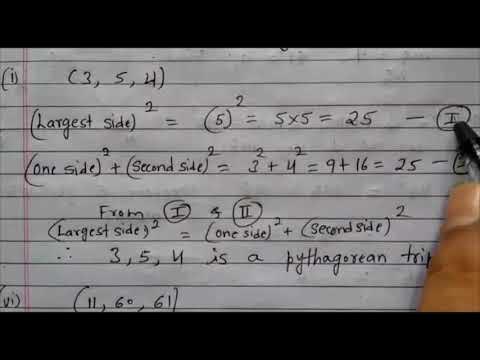 (i) (3, 5, 4)
(Largest side)² = (5)² = 5×5 = 25 — I
(One side)² + (Second side)² = 3² + 4² = 9+16 = 25 —
From I & II
(Largest side)² = (One side)² + (Second side)²
∴ 3, 5, 4 is a pythagorean
(vi) (11, 60, 61)